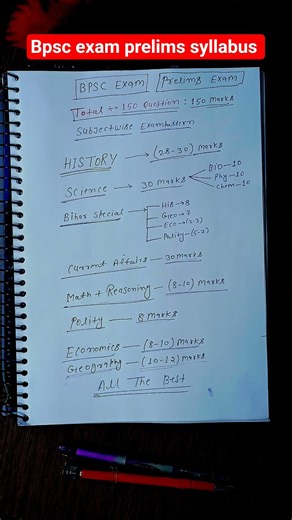 Bpsc exam prelims syllabus
BPSC Exam Prelims Exam
Total ÷ 150 Question : 150 marks
Subjectwise Exampattern
HISTORY → (28-30) marks
Science → 30 marks
Bio-10
Phy-10
Chem-10
Bihar Special
His → 8
Geo → 7
Eco → (2-3)
Pality - (5-2)
Current Affairs - 30 marks
Math + Reasoning - (8-10) marks
Polity - 8 marks
Economics - (8-10) marks
Geography - (10-12) marks
All The Best